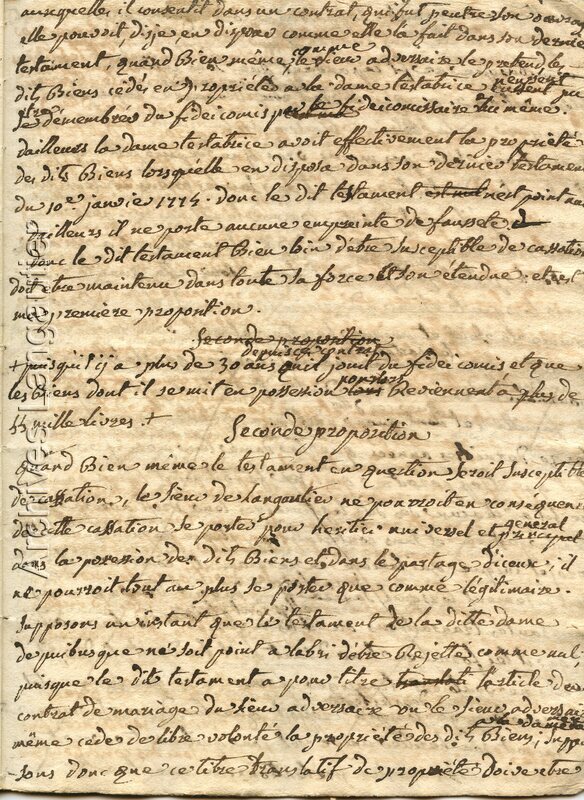 auxquelles il consentit dans un contrat, qui fut
elle pouvoit, dis je en disposer comme elle la fait dans son dernier
testament, quand Bien même, comme le sieur adversaire le pretend, les
dits Biens cedés en proprieté a la dame testatrice neussent
demembrés du fideicomis par le fideicomissaire lui même.
dailleurs la dame testatrice avoit effectivement la proprieté
des dits Biens lorsquelle en disposa dans son dernier testament
du 10e janvier 1774. donc le dit testament est nul n'est point nul
dailleurs il ne porte aucune empreinte de fausseté
donc le dit testament Bien loin dêtre susceptible de cassation
doit etre maintenu dans toute sa force et son etendue. et est
ma premiere proposition.
Seconde proposition
+ puisqu'il y a plus de 30 ans quil jouit du fideicomis et que
les Biens dont il se mit en possession Reviennent a plus de
mille livres. +
Seconde proposition
Quand Bien même le testament en question seroit susceptible
de cassation, le sieur de Langautier ne pourroit en consequence
de cette cassation se porter pour heritier universel et general
dans la possession des dits Biens et dans le partage diceux; il
ne pourroit tout au plus se porter que comme légitimaire.
Supposons un instant que le testament de la ditte dame
de puibusque ne soit point a labri dêtre Rejetté comme nul
puisque le dit testament a pour titre larticle du
contrat de mariage du sieur adversaire ou le sieur adversaire
même cede de libre volonté la proprieté des dits Biens; Suppo
-sons donc que ce titre translatif de proprieté doive etre
Archives Langautier